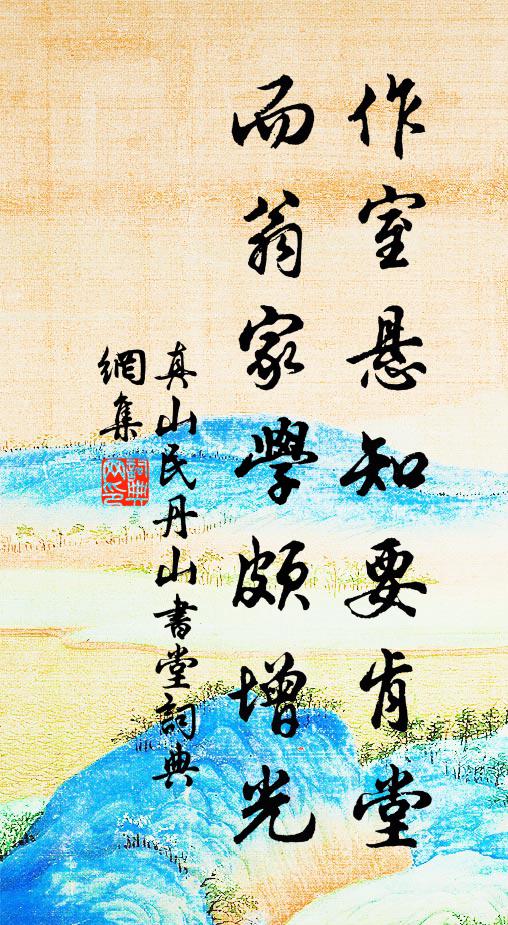 作室悬知要肯堂
而翁家學頗增光
真山民丹山書堂詞典
網集